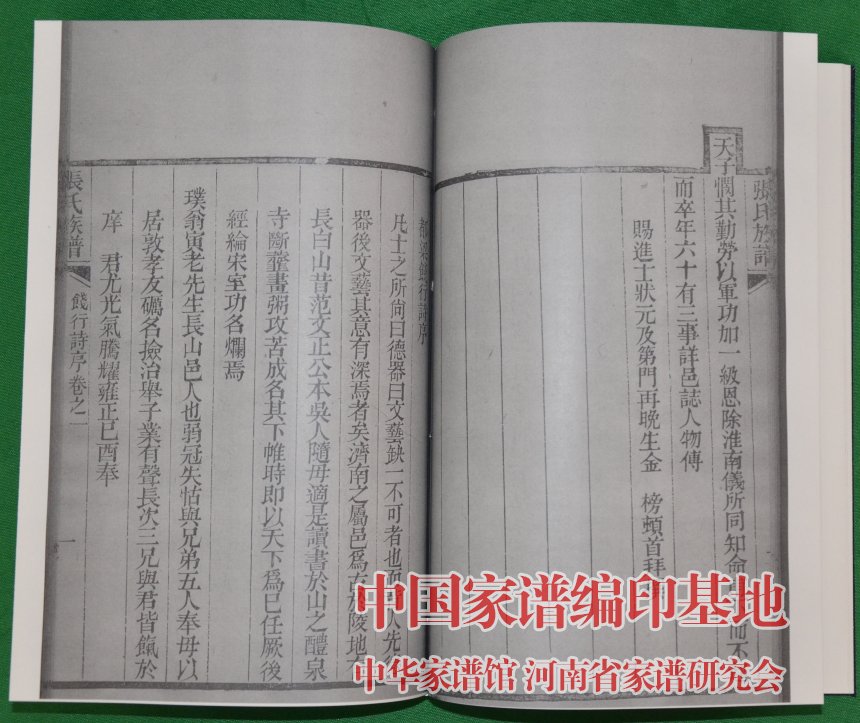 張氏族譜
天子憫其勤勞以軍功加一級恩除淮南儀所同知命而不
而卒年六十有三事詳邑誌人物傳
賜進士狀元及第門再晚生金 榜頓首拜
行詩序
凡士之所尙曰德器曰文藝缺一不可者也而人先後
器後文藝其意有深焉者矣濟南之屬邑爲古於陵地
長白山昔范文正公本吳人隨母適是讀書於山之醴泉
寺斷虀畫粥攻苦成名其下帷時即以天下爲已任厥後
經綸宋室功名爛焉
璞翁寅老先生長山邑人也弱冠失怙與兄弟五人奉母以
居敦孝友礪名撿治舉子業有聲長次三兄與君皆餼於
庠 君尤光氣騰耀雍正已酉奉
張氏族譜 餞行詩序卷之一 一
中国家谱编印基地
中华家谱馆 河南省家谱研究会